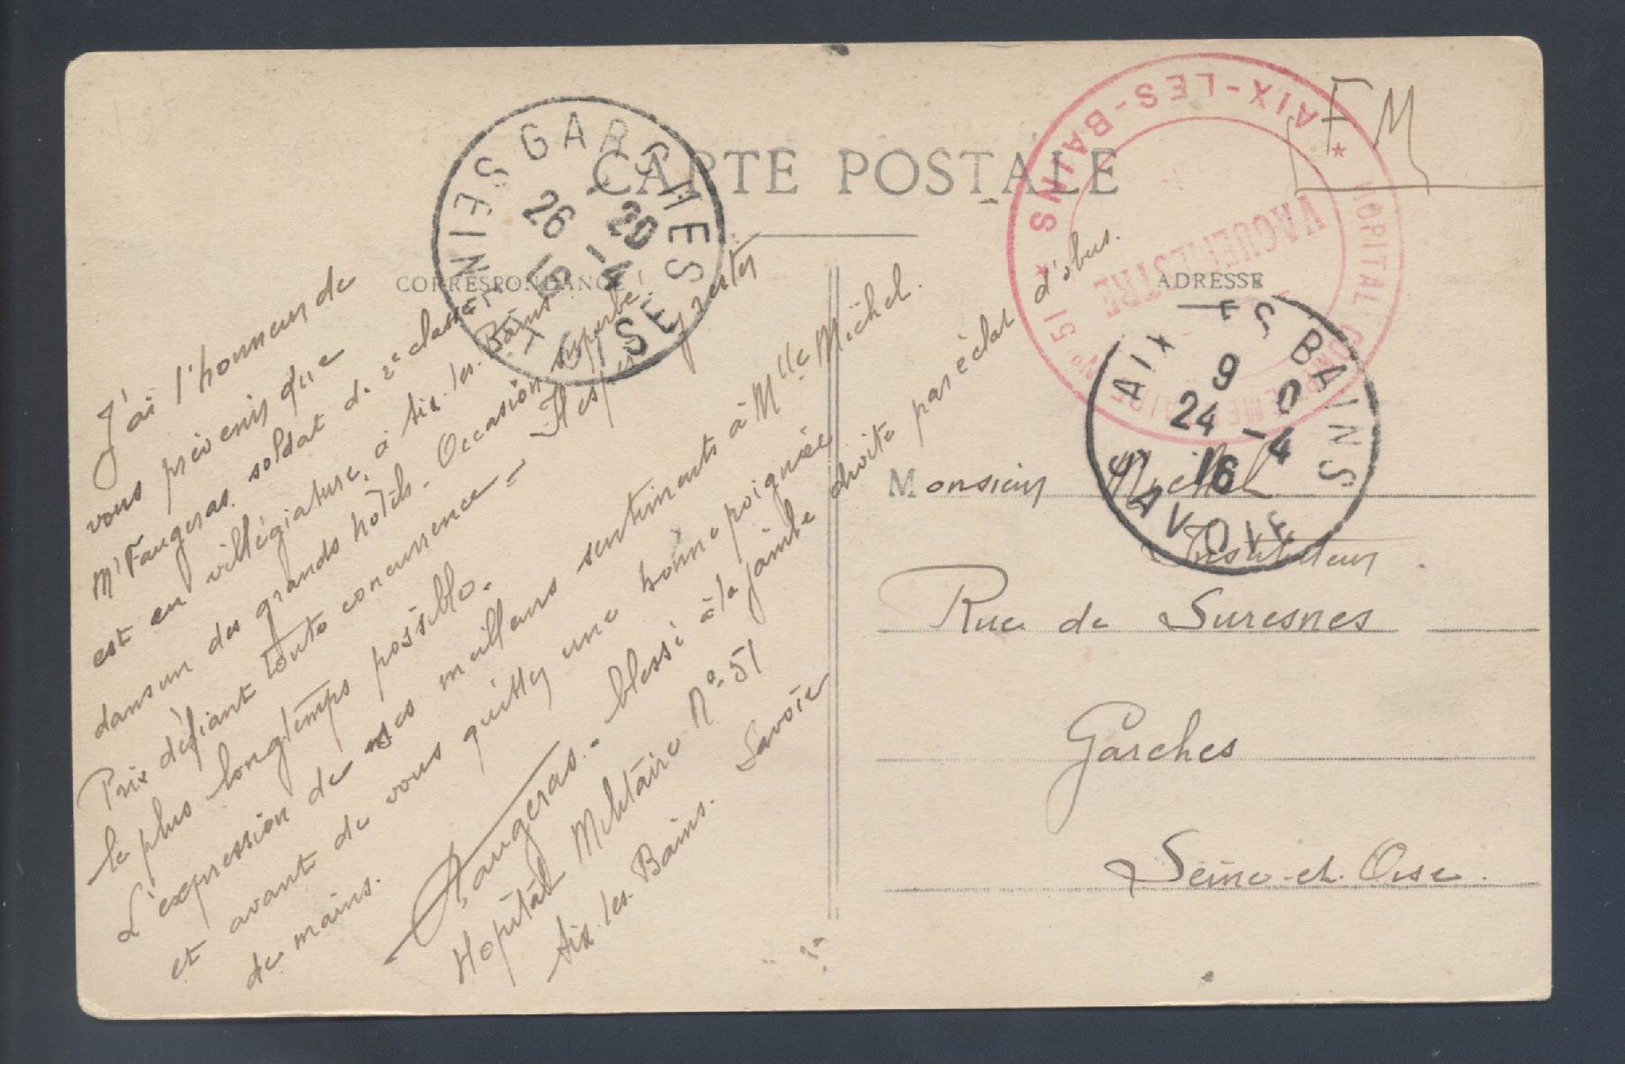 CARTE POSTALE
CORRESPONDANCE
ADRESSE
FM
GARCHES
SEINE ET OISE
20
26 -4
16
* AIX-LES-BAINS *
HOPITAL COMPLEMENTAIRE
No 51
VAGUEMESTRE
AIX LES BAINS
9
24 -4
16
SAVOIE
J'ai l'honneur de
vous prévenir que
Mr Faugeras, soldat de 2e classe
est en villégiature, à Aix-les-Bains
dans un des grands hotels. Occasion superbe.
Prix défiant toute concurrence - Il espère y rester
le plus longtemps possible.
L'expression de ses meilleurs sentiments à Mlle Michel.
et avant de vous quitter une bonne poignée
de mains.
Faugeras. - blessé à la jambe droite par éclat d'obus.
Hopital Militaire No. 51
Aix-les-Bains. Savoie
Monsieur Michel
Instituteur.
Rue de Suresnes
Garches
Seine-et-Oise.